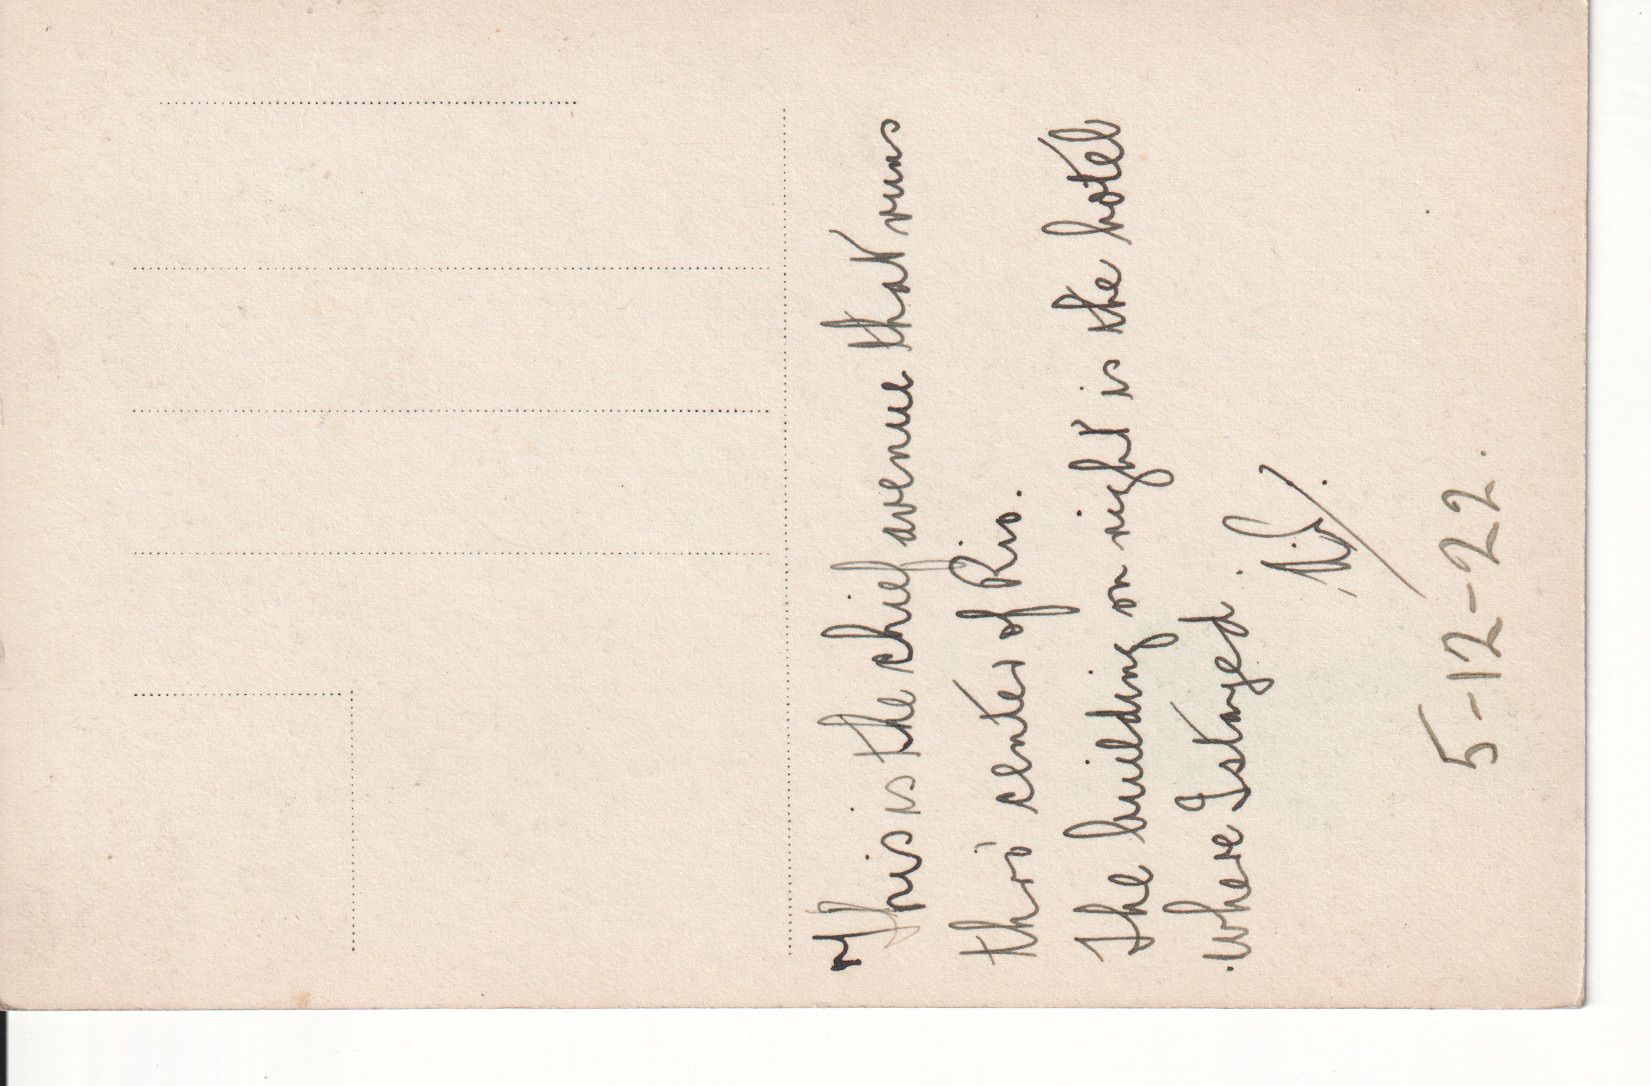 This is the chief avenue that runs
thro' center of Rio.
The building on right is the hotel
where I stayed.
5-12-22.